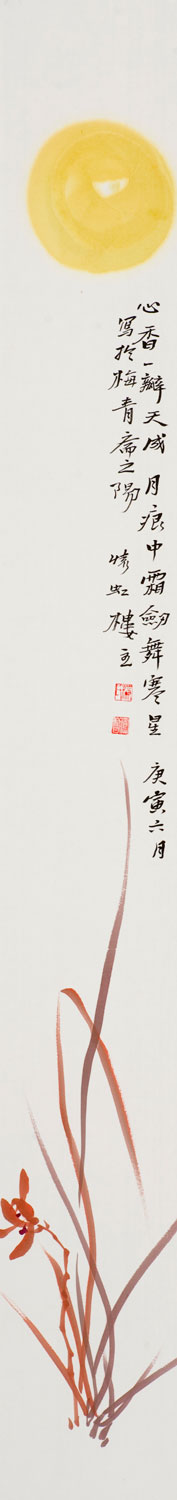 心香一瓣天成月痕中霜劍舞寒星 庚寅六月
寫於梅青齋之陽 虹樓主